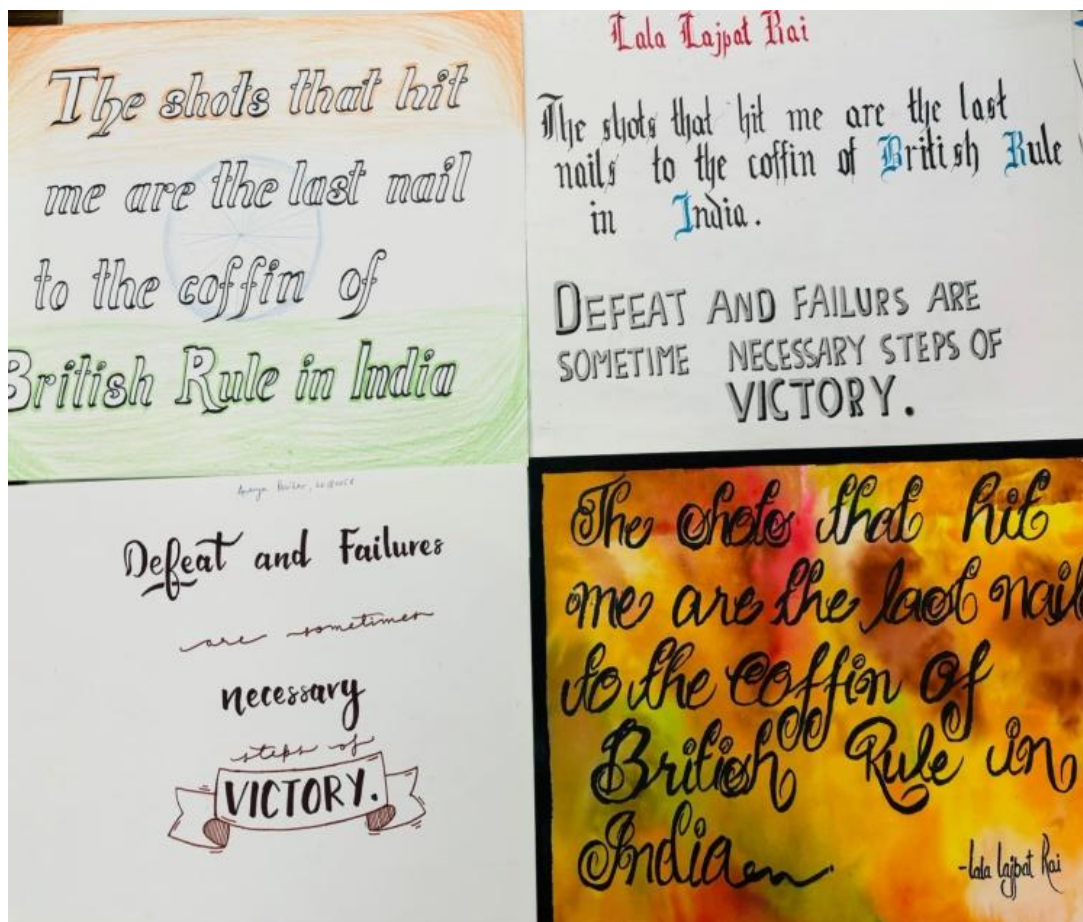 The shots that hit
me are the last nail
to the coffin of
British Rule in India
Lala Lajpat Rai
The shots that hit me are the last
nails to the coffin of British Rule
in India.
DEFEAT AND FAILURS ARE
SOMETIME NECESSARY STEPS OF
VICTORY.
Defeat and Failures
are sometimes
necessary
steps of
VICTORY.
The shots that hit
me are the last nail
to the coffin of
British Rule in
India
-Lala Lajpat Rai